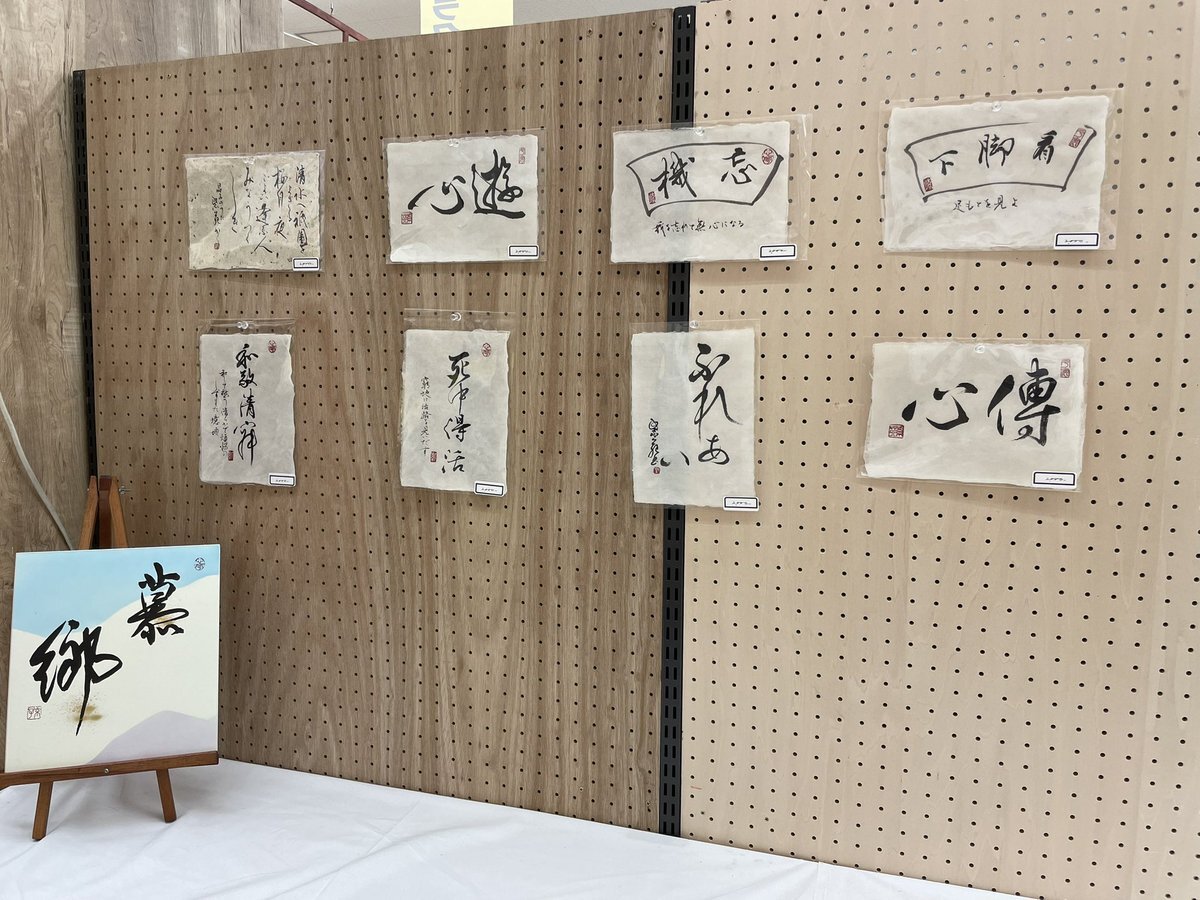 清水へ祇園を
よぎる
桜月夜
こよひ逢ふ人
みなうつく
しき
遊心
忘機
我を忘れて無心になる
看脚下
足もとを見よ
和敬清寂
死中得活
窮地に活路を見いだす
ふれあ
い
傳心
慕
郷